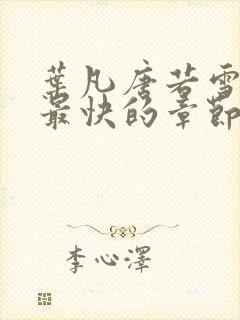 葉凡唐若雪
最快的章節
李心澤